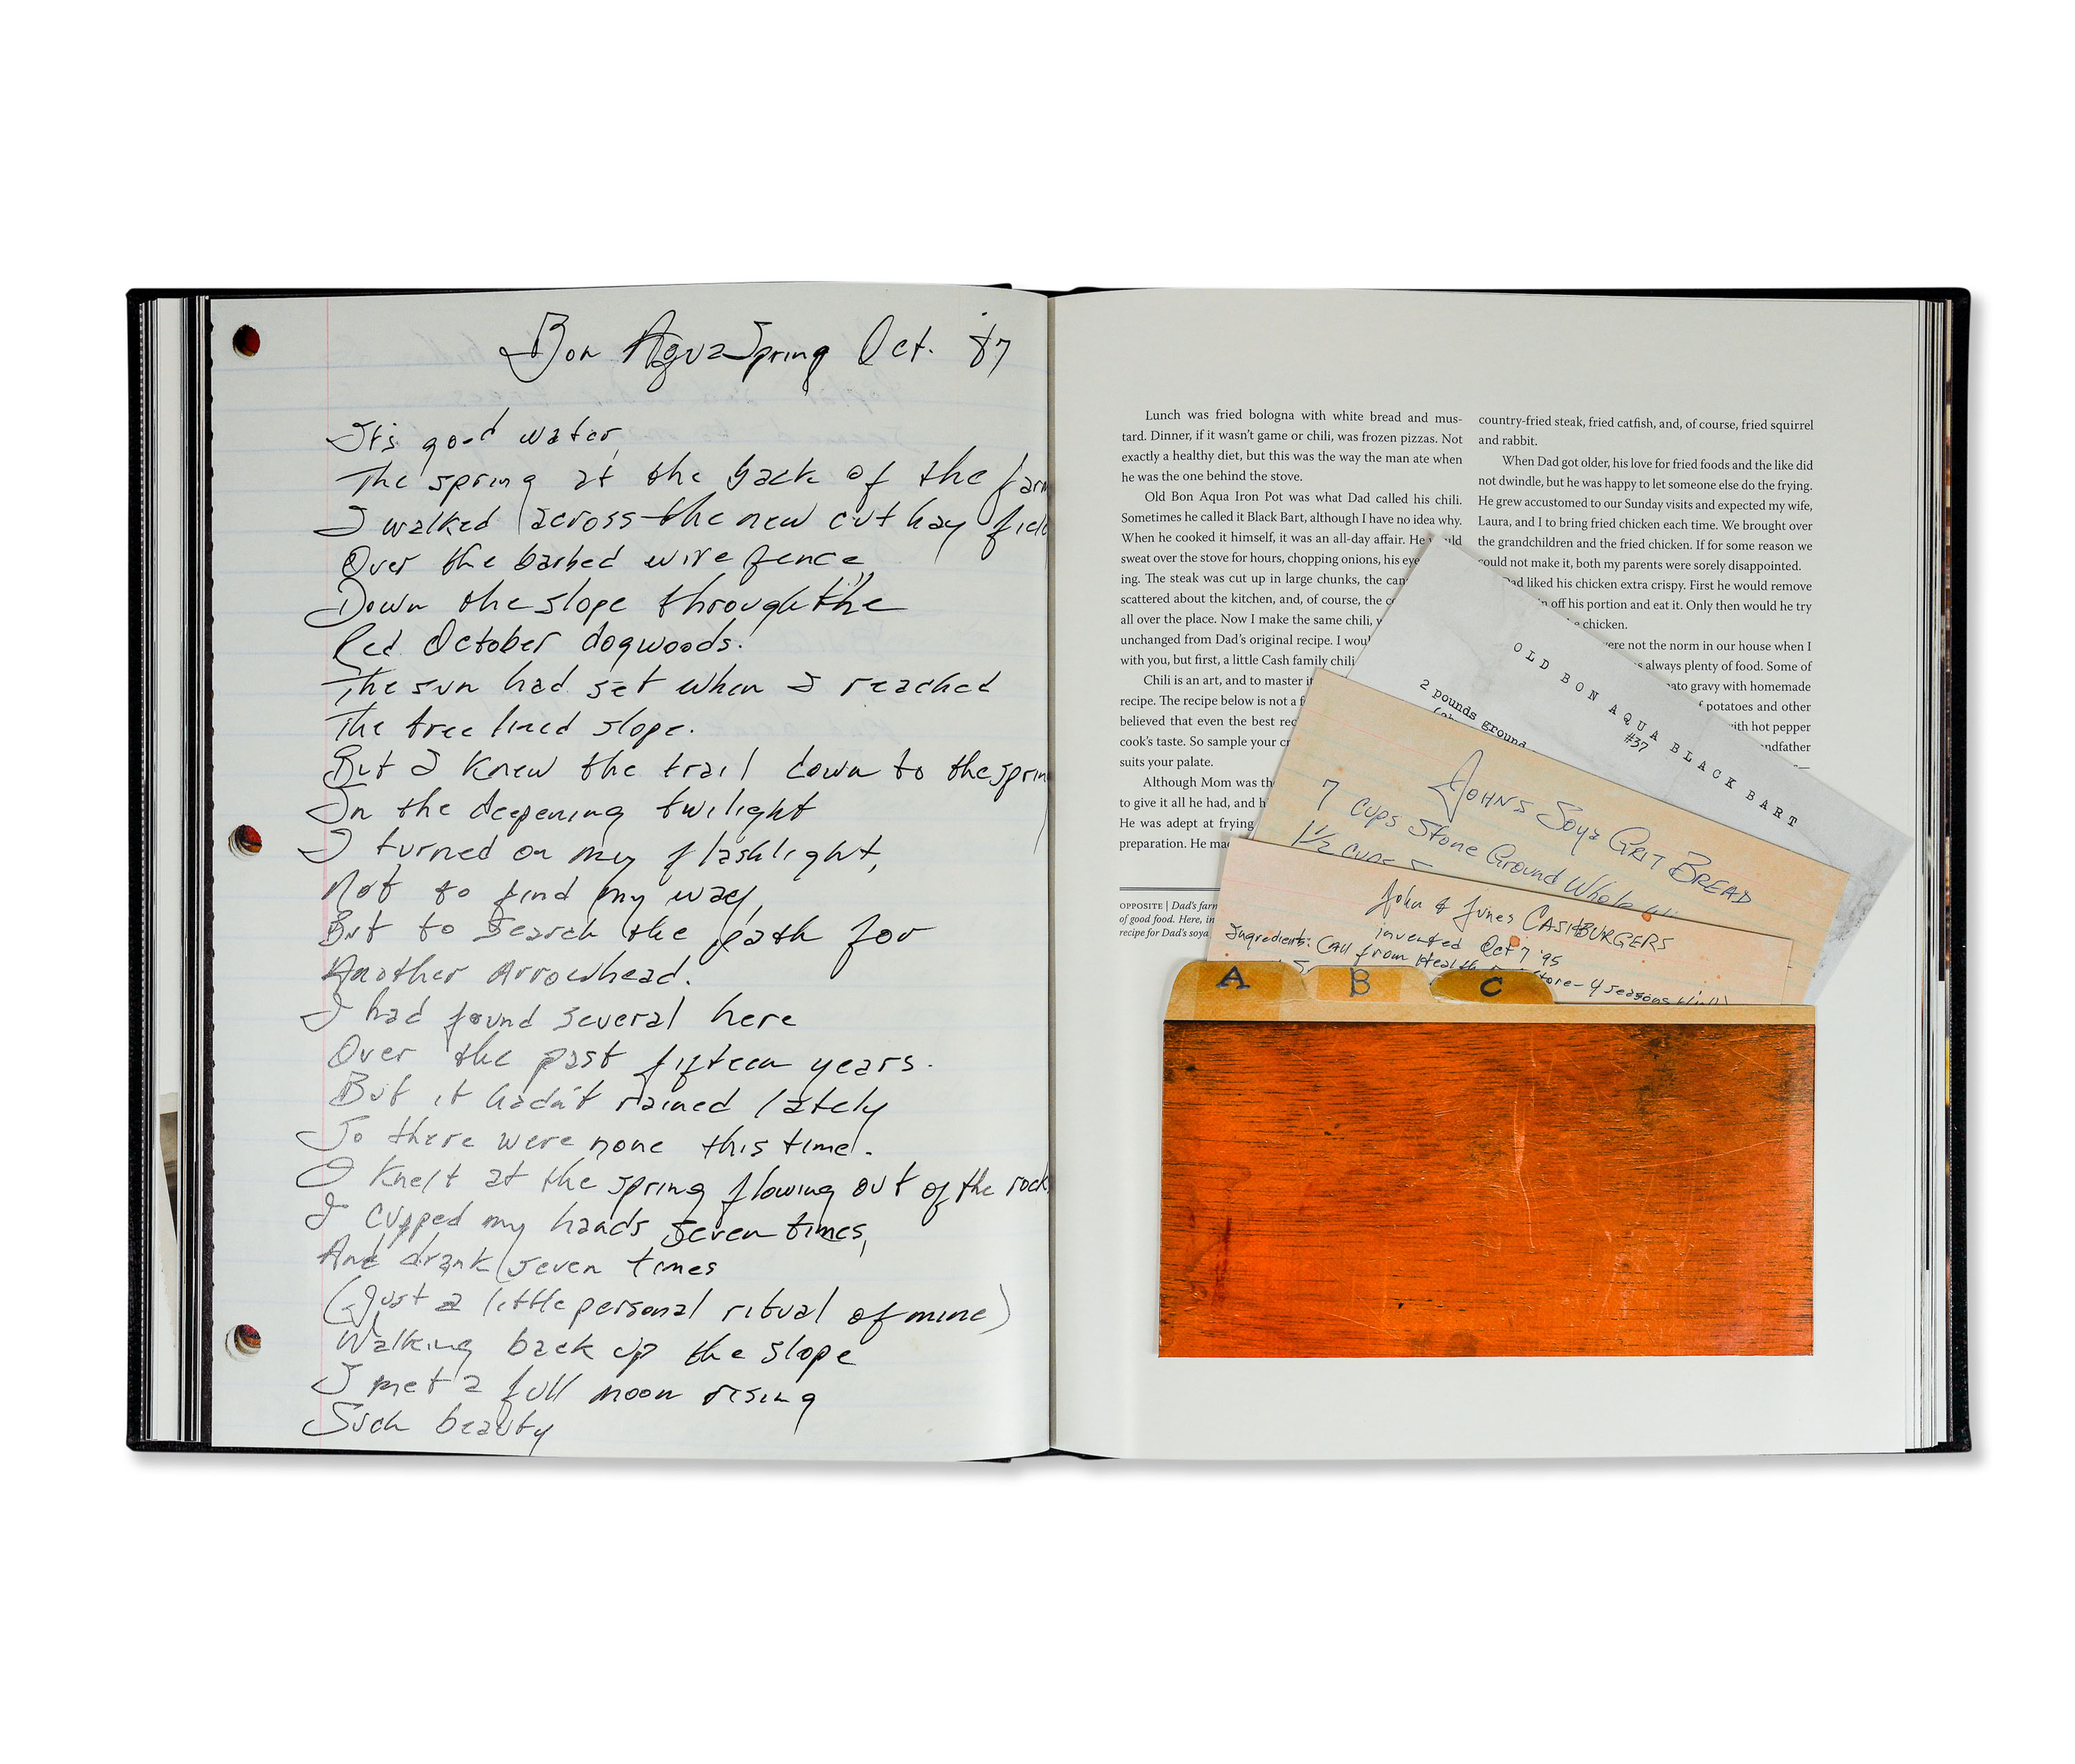 Bon Agua Spring Oct. '87
It's good water,
The spring at the back of the farm
I walked across the new cut hay field
Over the barbed wire fence
Down the slope through the
Red October dogwoods.
The sun had set when I reached
The tree lined slope.
But I knew the trail down to the spring
In the deepening twilight
I turned on my flashlight,
Not to find my way,
But to search the path for
Another Arrowhead.
I had found several here
Over the past fifteen years.
But it hadn't rained lately
So there were none this time.
I knelt at the spring flowing out of the rock
I cupped my hands seven times,
And drank seven times
(Just a little personal ritual of mine)
Walking back up the slope
I met a full moon rising
Such beauty
Lunch was fried bologna with white bread and mus-
tard. Dinner, if it wasn't game or chili, was frozen pizzas. Not
exactly a healthy diet, but this was the way the man ate when
he was the one behind the stove.
Old Bon Aqua Iron Pot was what Dad called his chili.
Sometimes he called it Black Bart, although I have no idea why.
When he cooked it himself, it was an all-day affair. He would
sweat over the stove for hours, chopping onions, his eye
ing. The steak was cut up in large chunks, the can
scattered about the kitchen, and, of course, the c
all over the place. Now I make the same chili,
unchanged from Dad's original recipe. I woul
with you, but first, a little Cash family chili
Chili is an art, and to master it
recipe. The recipe below is not a f
believed that even the best rec
cook's taste. So sample your c
suits your palate.
Although Mom was th
to give it all he had, and h
He was adept at frying
preparation. He ma
OPPOSITE | Dad's farm
of good food. Here, in
recipe for Dad's soya
country-fried steak, fried catfish, and, of course, fried squirrel
and rabbit.
When Dad got older, his love for fried foods and the like did
not dwindle, but he was happy to let someone else do the frying.
He grew accustomed to our Sunday visits and expected my wife,
Laura, and I to bring fried chicken each time. We brought over
the grandchildren and the fried chicken. If for some reason we
could not make it, both my parents were sorely disappointed.
Dad liked his chicken extra crispy. First he would remove
off his portion and eat it. Only then would he try
chicken.
were not the norm in our house when I
always plenty of food. Some of
ato gravy with homemade
potatoes and other
with hot pepper
ndfather
OLD BON AQUA BLACK BART
#37
2 pounds ground
JOHNS Soya GRIT BREAD
7 cups Stone Ground Whole
1 1/2 cups
John & Junes CASHBURGERS
invented Oct 7 '95
Ingredients: (All from Health Store - 4 Seasons
A B C